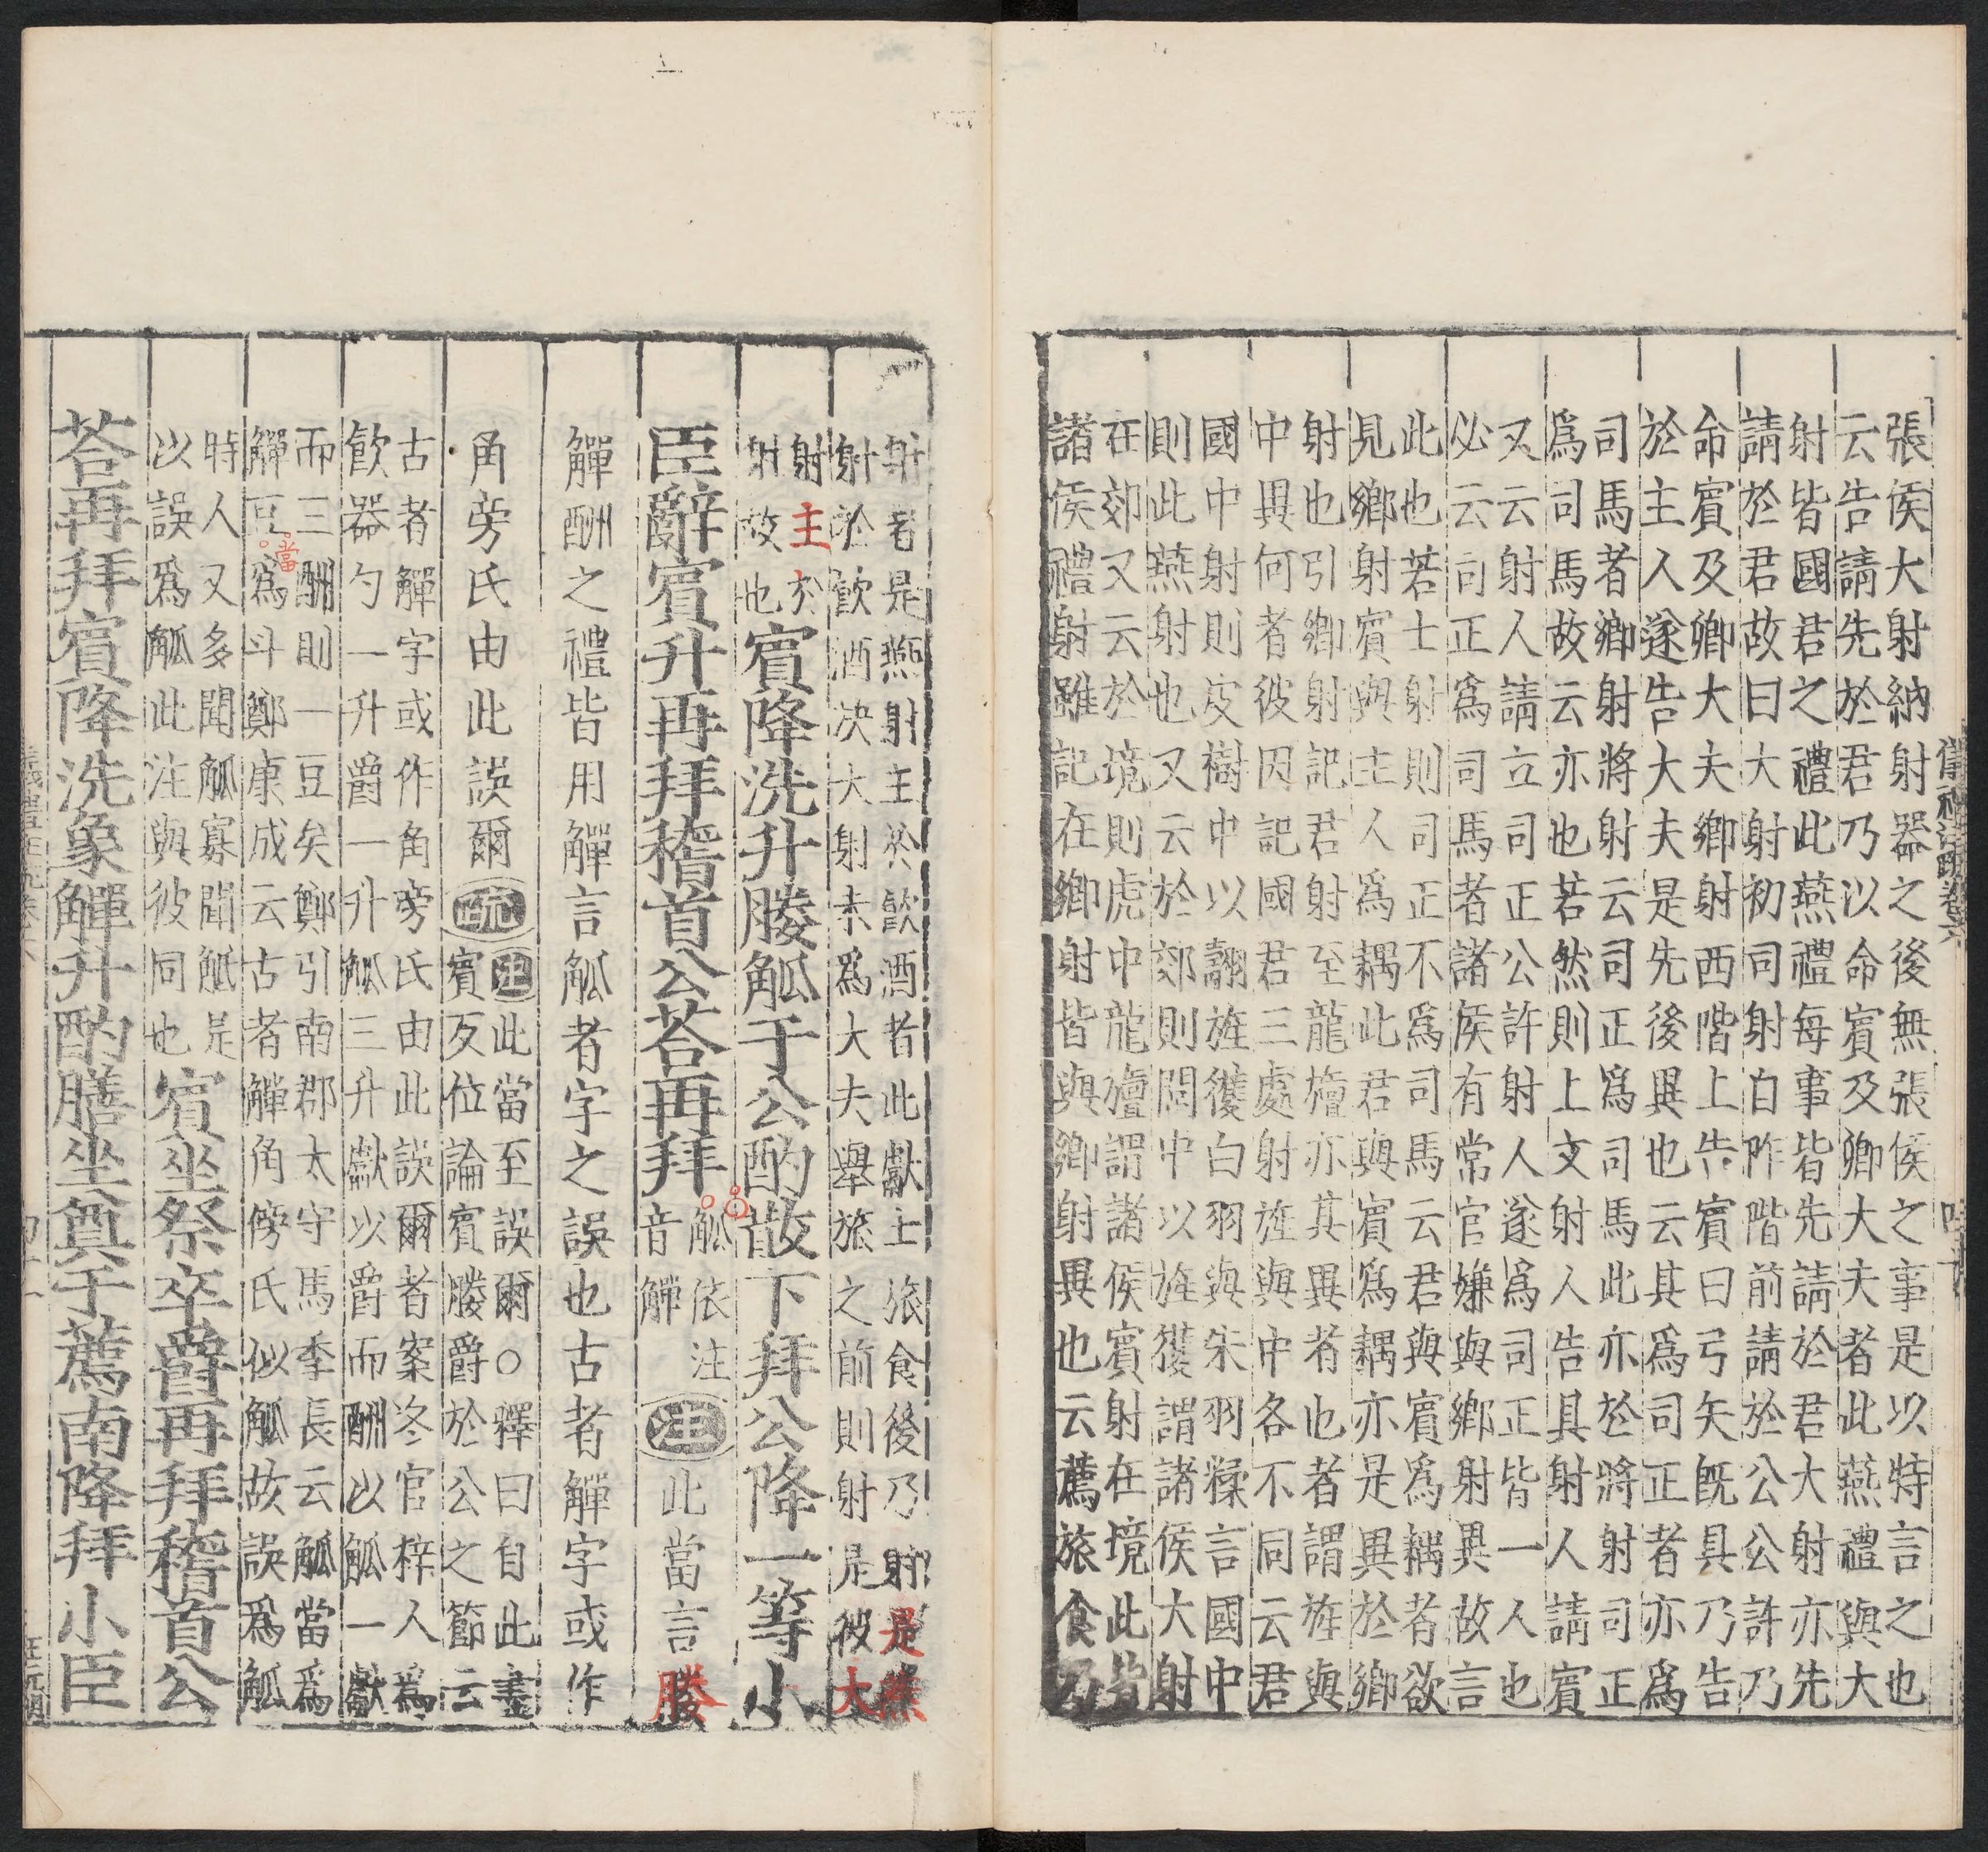 張侯大射納射器之後無張侯之事是以特言之也
云告請先於君乃以命賓及卿大夫者此燕禮與大
射皆國君之禮此燕禮每事皆先請於君大射亦先
請於君故曰大射初同射白阼階前請於公公許乃
命賓及卿大夫卿射西階上告賓曰弓矢既具乃告
於主人遂告大夫是先後異也云其爲司正者亦爲
司馬者卿射將射云司正爲司馬此亦於將射司正
爲司馬故云亦也若然則上文射人告具射人請賓
又云射人請立司正公許射人遂爲司正皆一人也
必云司正爲司馬者諸侯有常官嫌與鄉射異故言
此也若士射則司正不爲司馬云君與賓爲耦者欲
見鄉射賓與主人爲耦此君與賓爲耦亦是異於鄉
射也引鄉射記君射至龍旜亦其異者也者謂旌與
中異何者彼因記國君三處射旌與中各不同云君
國中射則皮樹中以翿旌獲白羽與朱羽糅言國中
則此燕射也又云於郊則閭中以旌獲謂諸侯大射
在郊又云於境則虎中龍旜謂諸侯賓射在境此皆
諸侯禮射雖記在鄉射皆與鄉射異也云薦旅食乃
射者是燕射主於飲酒者此獻士旅食後乃射是燕
射於飲酒決大射未爲大夫舉旅之前則射是彼大
射主於
射故也
賓降洗升媵觚于公酌散下拜公降一等小
臣辭賓升再拜稽首公荅再拜
觚依注
音觶
注
此當言媵
觶酬之禮皆用觶言觚者字之誤也古者觶字或作
角旁氏由此誤爾
疏
注此當至誤爾○釋曰自此盡
賓反位論賓媵爵於公之節云
古者觶字或作角旁氏由此誤爾者案冬官梓人爲
飲器勺一升爵一升觚三升獻以爵而酬以觚一獻
而三酬則一豆矣鄭引南郡太守馬季長云觚當爲
觶豆當爲斗鄭康成云古者觶角傍氏似觚故誤爲觚
時人又多聞觚寡聞觗是
以誤爲觚此注與彼同也
賓坐祭卒爵再拜稽首公
荅再拜賓降洗象觶升酌膳坐奠于薦南降拜小臣